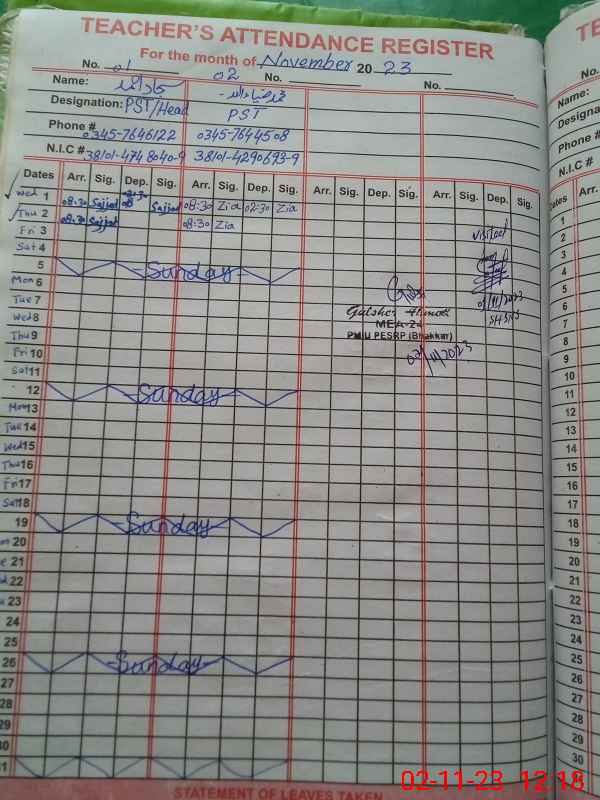 TEACHER'S ATTENDANCE REGISTER
For the month of November 2023
No. 01 02 No. No.
Name:
Designation: PST/Head PST
Phone # 0345-7646122 0345-7644508
N.I.C # 38101-4748040-9 38101-4290693-9
Dates Arr. Sig. Dep. Sig. Arr. Sig. Dep. Sig. Arr. Sig. Dep. Sig. Arr. Sig. Dep. Sig.
Wed 1 08:30 Sajjad Sajjad 08:30 Zia 02:30 Zia
Thu 2 08:30 Sajjad 08:30 Zia
Fri 3 visited
Sat 4
5 Sunday
Mon 6
Tue 7
Wed 8
Thu 9
Fri 10
Sat 11
12 Sunday
Mon 13
Tue 14
Wed 15
Thu 16
Fri 17
Sat 18
19 Sunday
20
21
22
23
24
25
26 Sunday
27
28
29
30
31
MEA-24
PMIU PESRP (Bhakkar)
02/11/2023
STATEMENT OF LEAVES TAKEN
No.
Name:
Designa
Phone #
N.I.C #
Dates Arr.
1
2
3
4
5
6
7
8
9
10
11
12
13
14
15
16
17
18
19
20
21
22
23
24
25
26
27
28
29
30
02-11-23 12:18